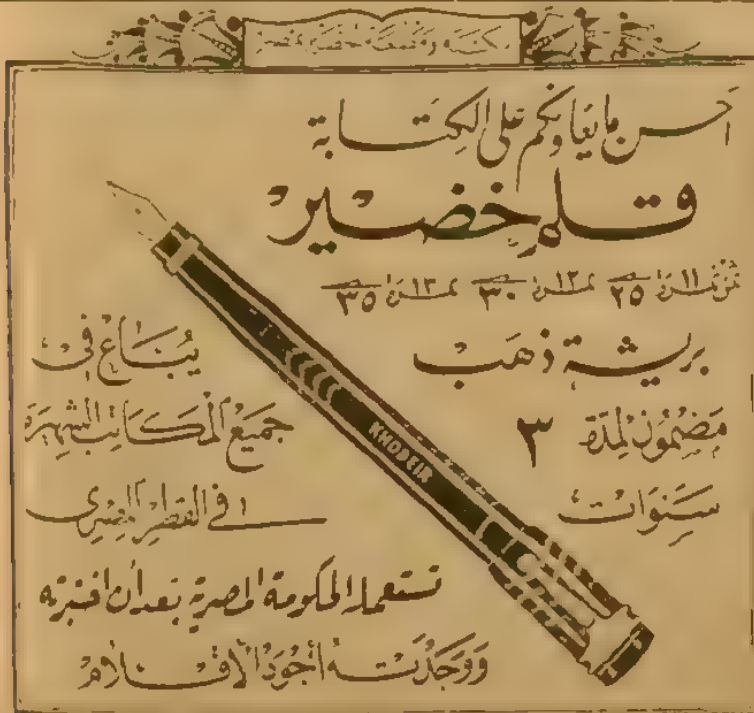 مكتبة ومطبعة خضير بمصر
أحسن ما يعاونكم على الكتابة
قلم خضير
ثمن نمرة ١١ ٢٥ نمرة ١٢ ٣٠ نمرة ١٣ ٣٥
بريشة ذهب
مضمون لمدة ٣
سنوات
يُبَاع في
جميع المكاتب الشهيرة
في القطر المصري
KHODEIR
تستعمله الحكومة المصرية بعد أن اختبرته
ووجدته أجود الأقلام